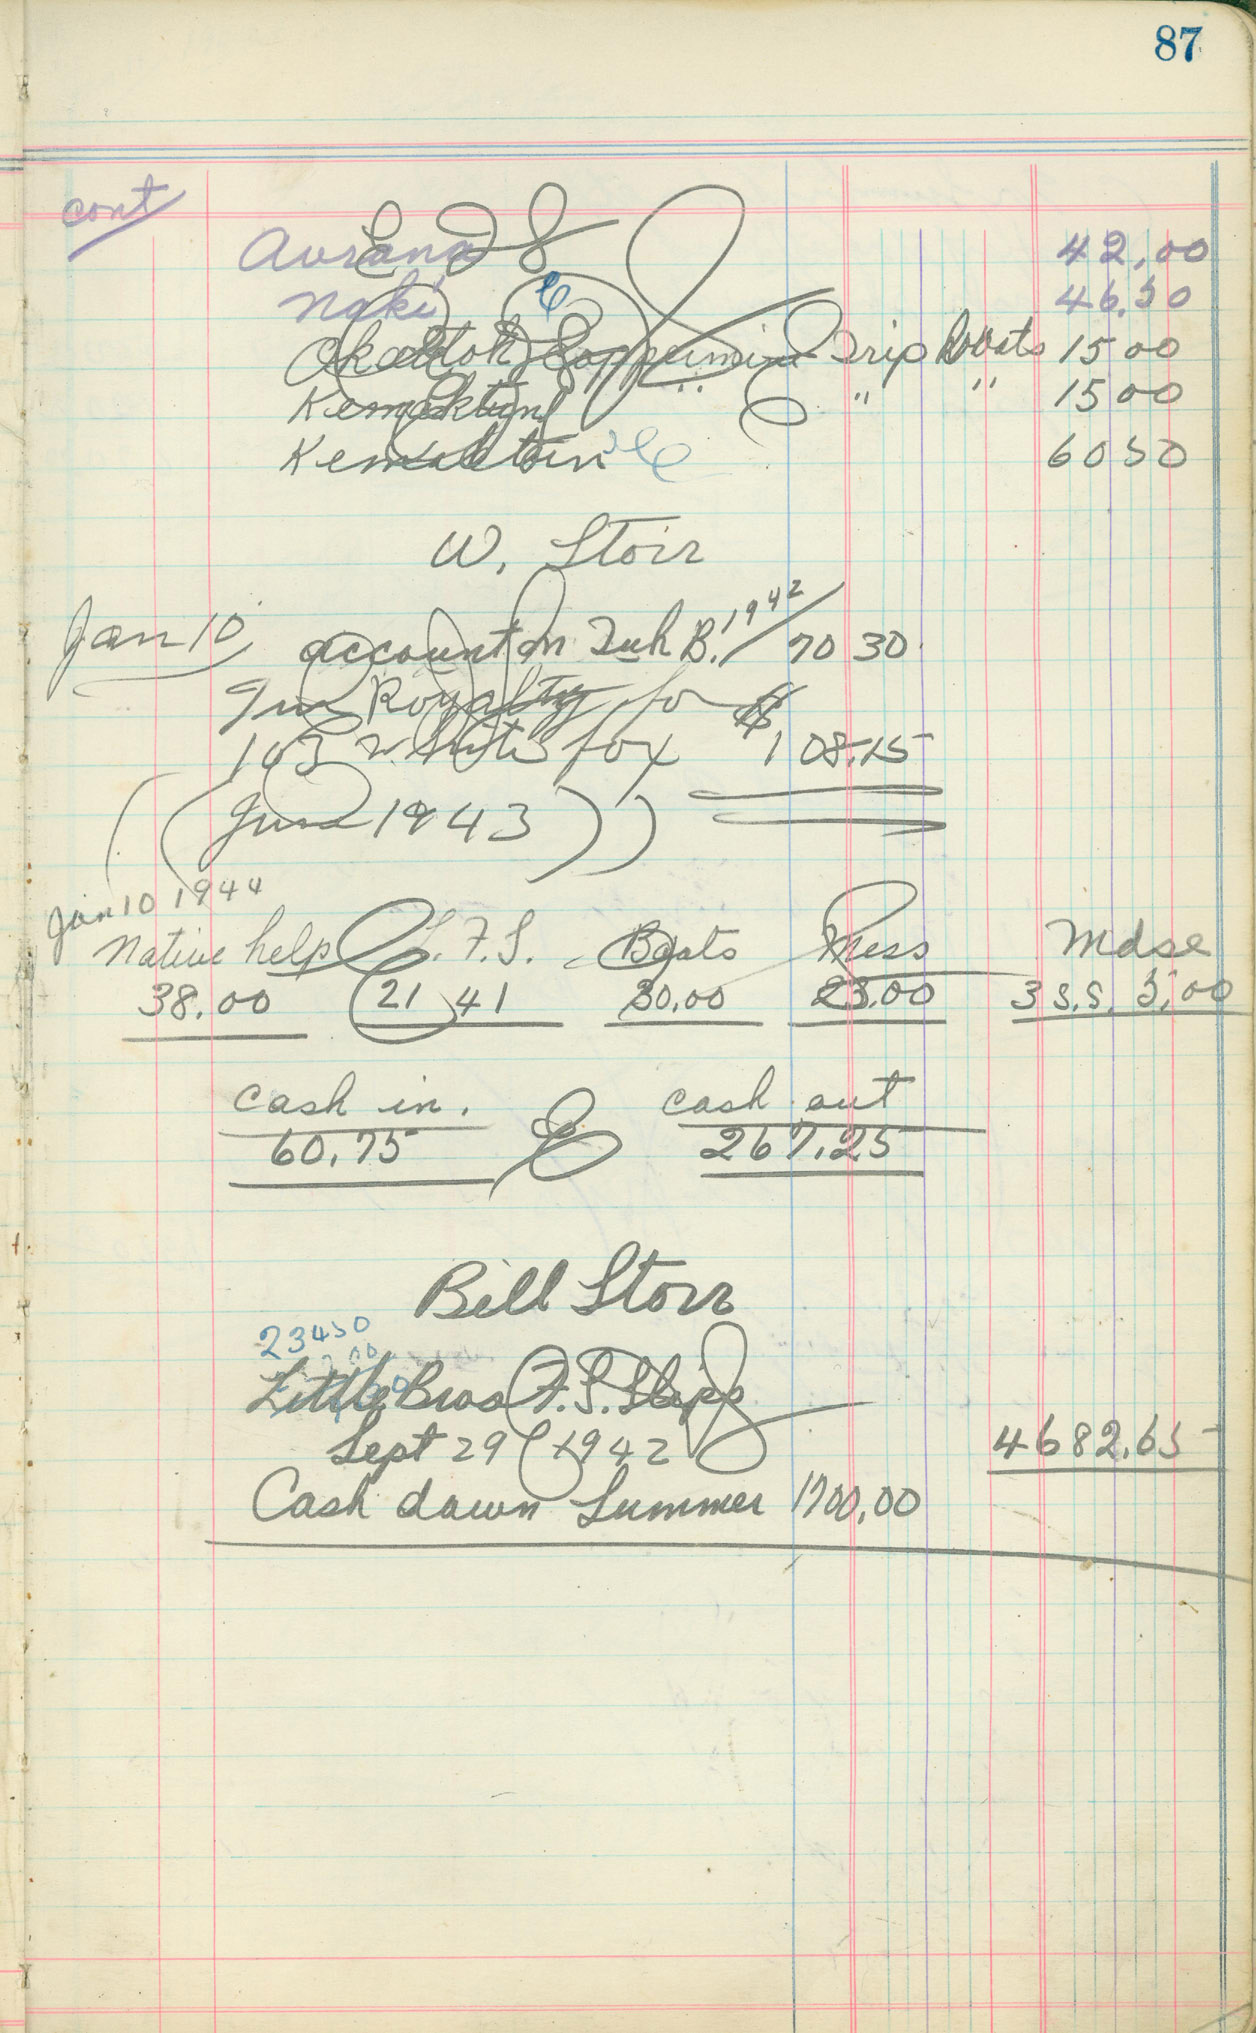 87
cont
Avrana 42.00
Naki 46.50
Okaitok Coppermine Trip Boats 15 00
Kemaktun " " " 15 00
Kemaktun 60 50
W. Storr
Jan 10 account in Tuk B. 1942 / 70 30
Royalty for $
103 white fox 108.15
(( June 1943 ))
Jan 10 1944
Native help L. F. S. Boats Mess Mdse
38.00 21 41 30.00 23.00 3 S.S. 5.00
cash in. cash out
60.75 267.25
Bill Storr
23450
Little Bros F. S. Slips
Sept 29 1942 4682.65
Cash down Summer 1700.00